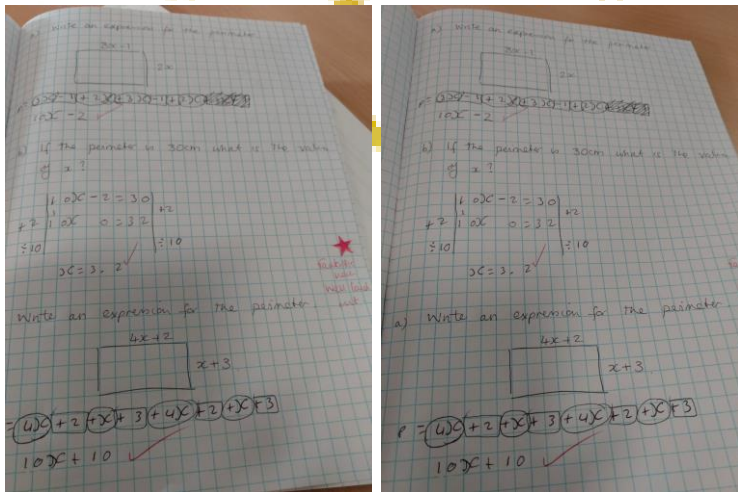 a) Write an expression for the perimeter
3x-1
2x
10x - 2
b) If the perimeter is 30cm what is the value
of x?
10x - 2 = 30
+2
+2
10x 0 = 32
÷10
÷10
x = 3.2
Write an expression for the perimeter.
4x+2
x+3
= 4x + 2 + x + 3 + 4x + 2 + x + 3
10x + 10
a) Write an expression for the perimeter
3x-1
2x
10x - 2
b) If the perimeter is 30cm what is the value
of x?
10x - 2 = 30
+2
+2
10x 0 = 32
÷10
÷10
x = 3.2
a) Write an expression for the perimeter
4x+2
x+3
P = 4x + 2 + x + 3 + 4x + 2 + x + 3
10x + 10